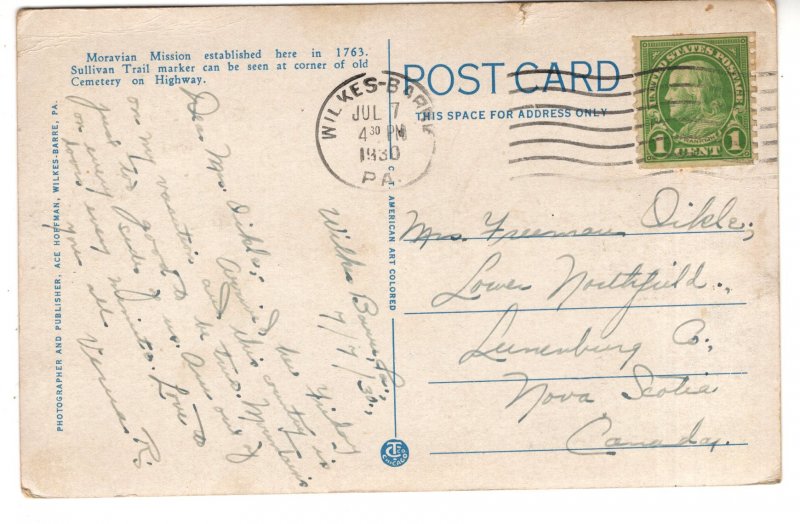 Moravian Mission established here in 1763.
Sullivan Trail marker can be seen at corner of old
Cemetery on Highway.
POST CARD
THIS SPACE FOR ADDRESS ONLY
WILKES-BARRE
JUL 7
4 30 PM
1930
PA.
UNITED STATES POSTAGE
FRANKLIN
1 CENT 1
PHOTOGRAPHER AND PUBLISHER, ACE HOFFMAN, WILKES-BARRE, PA.
C. T. AMERICAN ART COLORED
CHICAGO
Wilkes Barre, Pa.,
7/7/30.
Dear Mrs. Oikle;
Arrived here Friday
and this country is
on my vacation and
just too good to us.
enjoying every minute. Love to
you all Verna R.
Mrs. Freeman Oikle,
Lower Northfield,
Lunenburg Co.,
Nova Scotia
Canada.